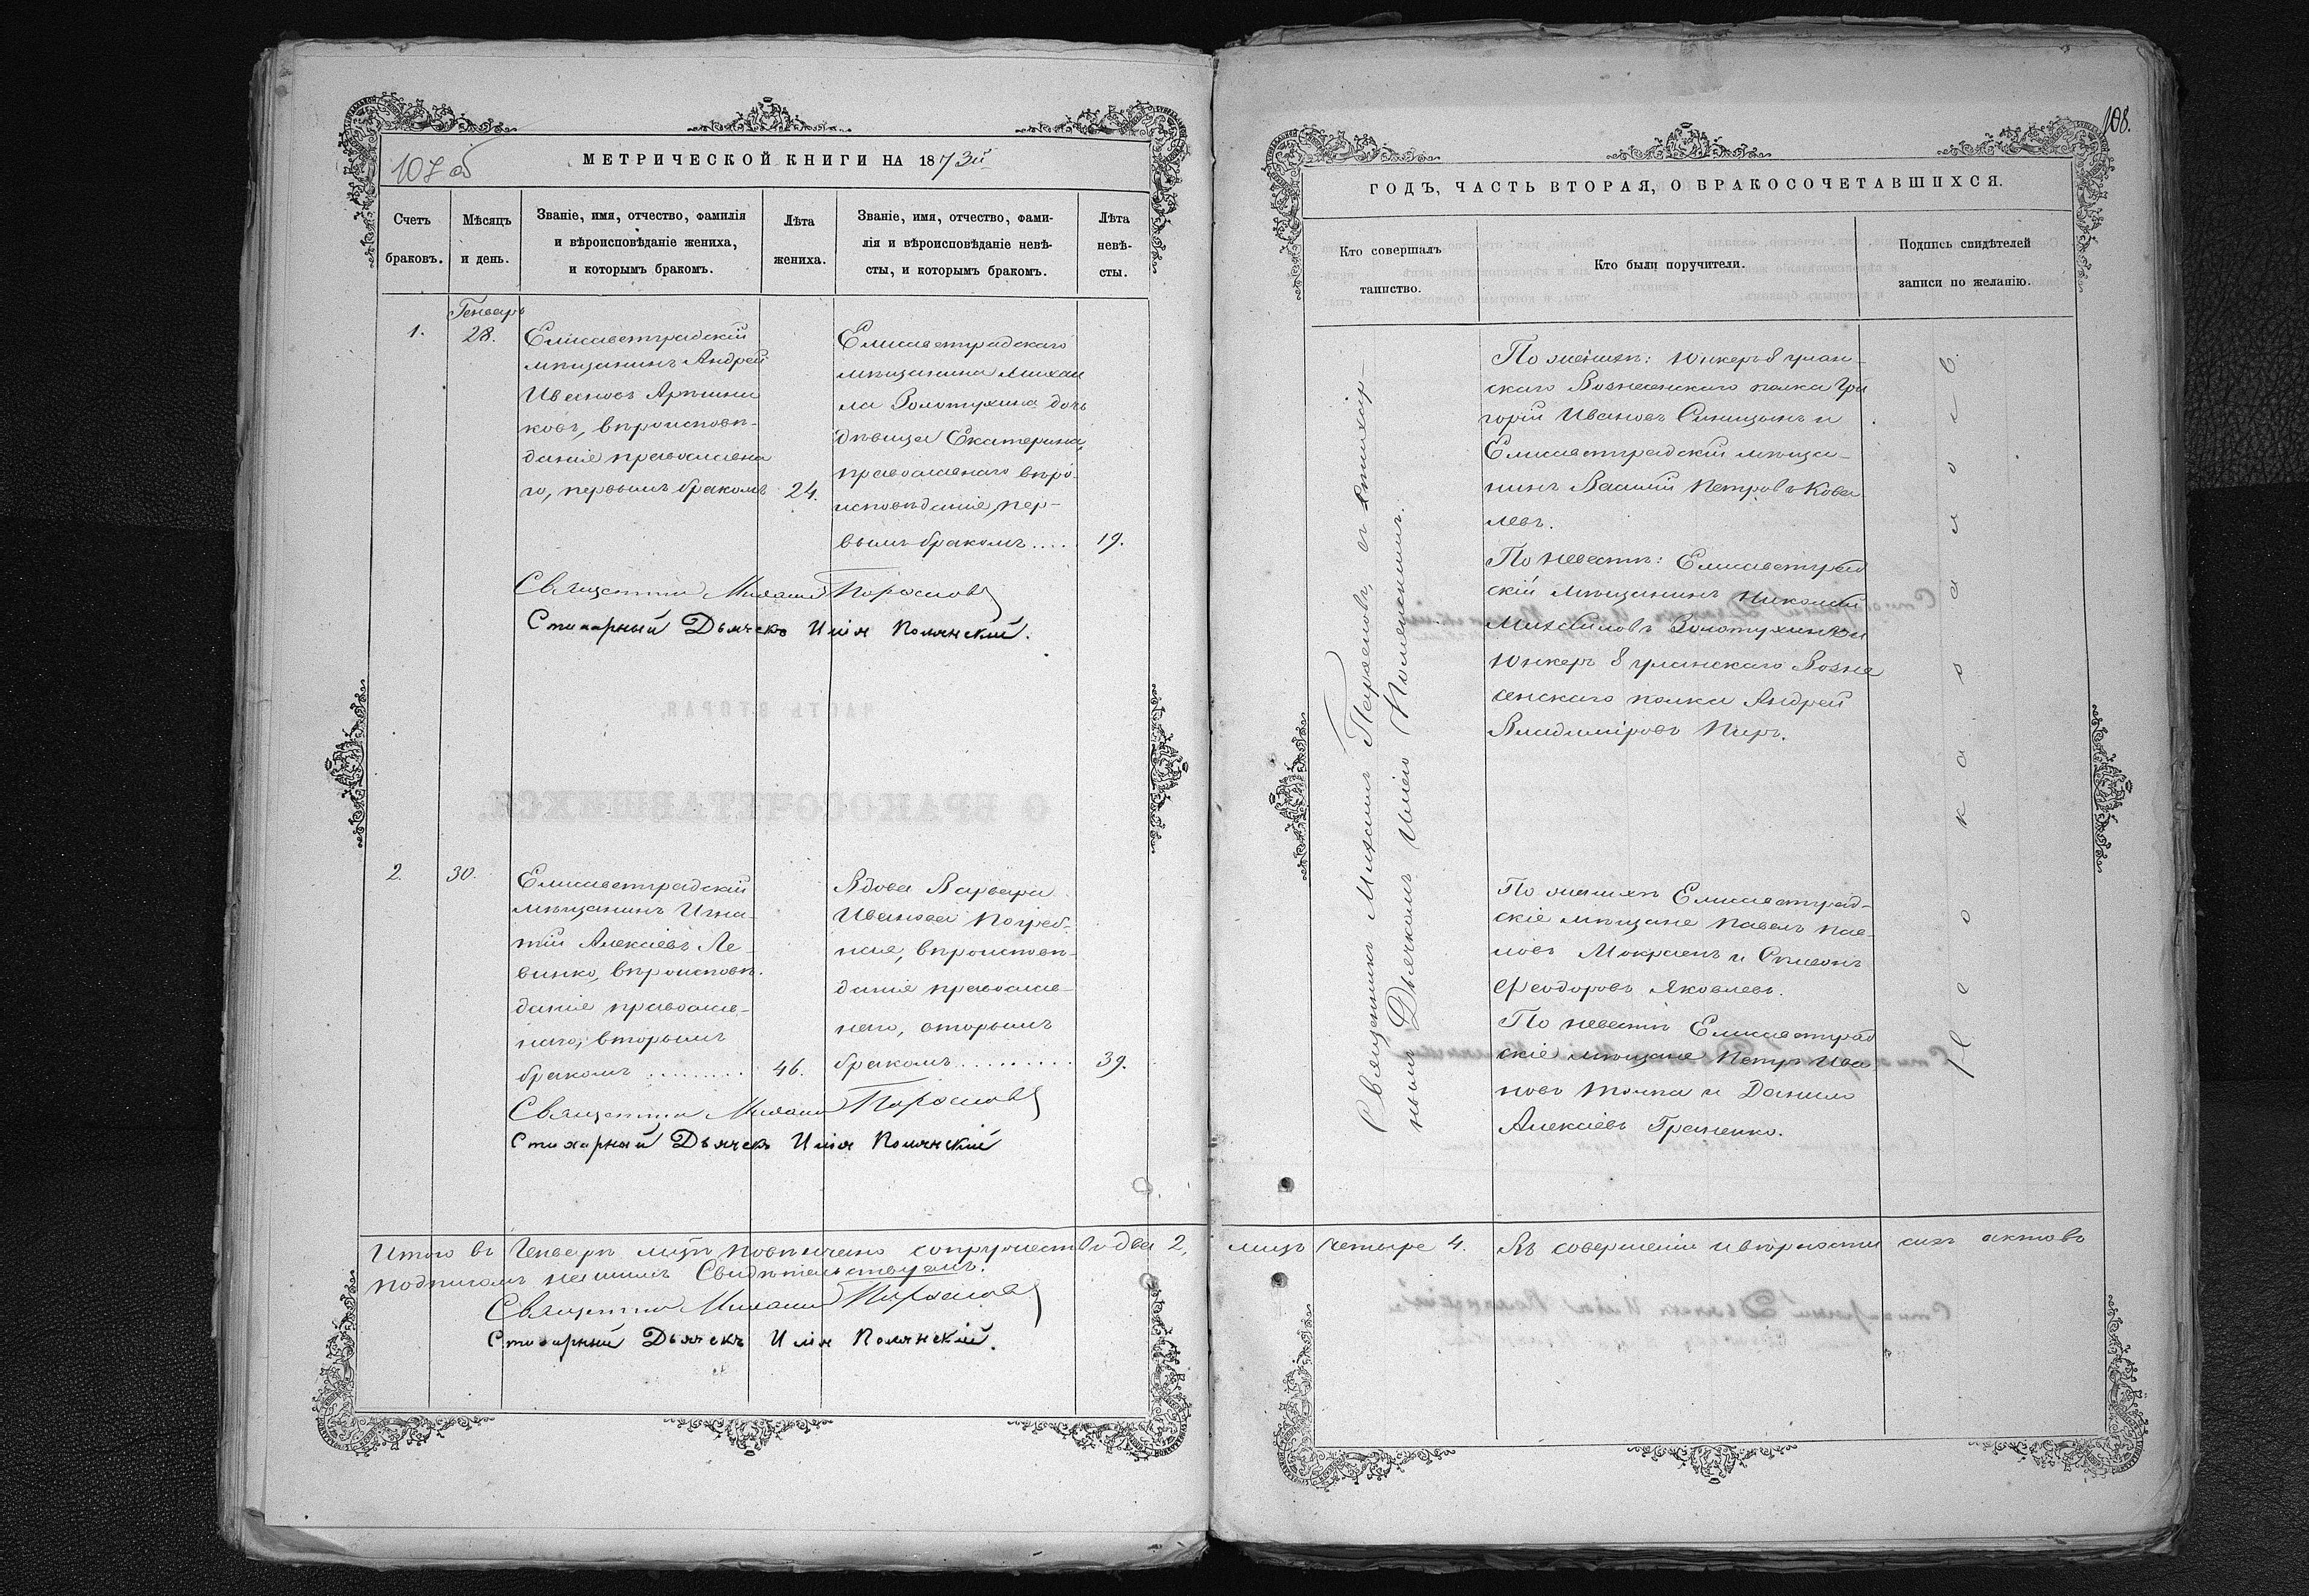 107 об
МЕТРИЧЕСКОЙ КНИГИ НА 1873й
Счетъ
браковъ.
Мѣсяцъ
и день.
Званіе, имя, отчество, фамилія
и вѣроисповѣданіе жениха,
и которымъ бракомъ.
Лѣта
жениха.
Званіе, имя, отчество, фами-
лія и вѣроисповѣданіе невѣ-
сты, и которымъ бракомъ.
Лѣта
невѣ-
сты.
1.
Генварь
28.
Елисаветградскій
мѣщанинъ Андрей
Ивановъ
ковъ, вѣроисповѣ-
данія православна
го, первымъ бракомъ
24.
Елисаветградскаго
мѣщанина Михаи
ла Золотухина дочь
дѣвица Екатерина,
православнаго вѣро
исповѣданія, пер-
вымъ бракомъ....
19.
Священникъ Михаилъ
Стихарный Дьячекъ Илія Полянскій.
2.
30.
Елисаветградскій
мѣщанинъ Игна-
тій Алексіевъ Ле-
винко, вѣроисповѣ-
данія православ-
наго, вторымъ
бракомъ ..........
46.
Вдова Варвара
Иванова Погреб-
ная, вѣроисповѣ-
данія православ-
наго, вторымъ
бракомъ..........
39.
Священникъ Михаилъ
Стихарный Дьячекъ Илія Полянскій
Итого въ Генварѣ м-цѣ повѣнчано супружествъ два 2,
подписомъ нашимъ Свидѣтельствуемъ.
Священникъ Михаилъ
Стихарный Дьячекъ Илія Полянскій.
108.
ГОДЪ, ЧАСТЬ ВТОРАЯ, О БРАКОСОЧЕТАВШИХСЯ.
Кто совершалъ
таинство.
Кто были поручители.
Подпись свидѣтелей
записи по желанію.
Священникъ Михаилъ съ стихар-
нымъ Дьячкомъ Иліею Полянскимъ.
По женихѣ: Юнкеръ 8 улан-
скаго Вознесенскаго полка Гри
горій Ивановъ Синицынъ и
Елисаветградскій мѣща-
нинъ Василій Петровъ Кова
левъ.
По невестѣ: Елисаветград
скій мѣщанинъ Николай
Михаиловъ Золотухинъ и
Юнкеръ 8 уланскаго Возне
сенскаго полка Андрей
Владиміровъ
По женихѣ Елисаветград-
скіе мѣщане Павелъ Пав-
ловъ и
Феодоровъ Яковлевъ.
По невестѣ Елисаветград
скіе мѣщане Петръ Ива
новъ и Данило
Алексіевъ
Не оказалось.
лицъ четыре 4. Въ совершеніи и вѣрности сихъ актовъ